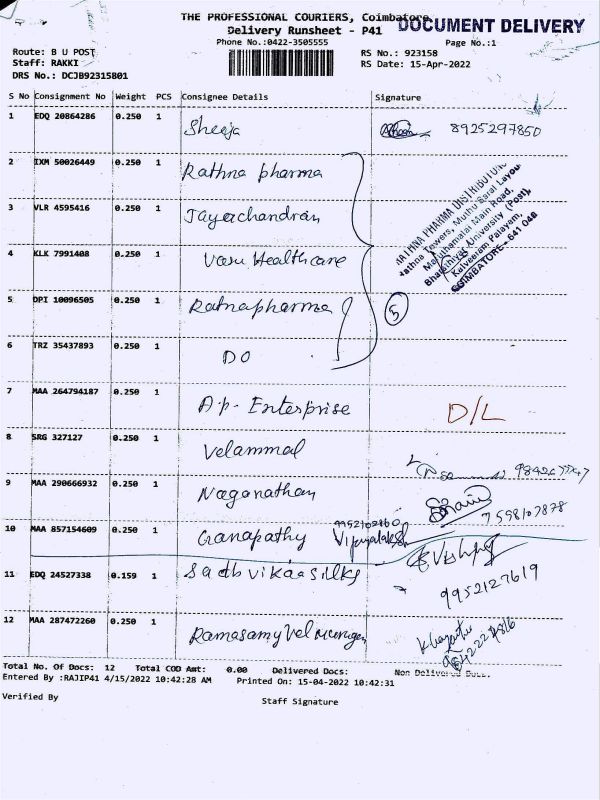 THE PROFESSIONAL COURIERS, Coimbatore
DOCUMENT DELIVERY
Delivery Runsheet - P41
Phone No.:0422-3505555
Page No.:1
Route: B U POST
RS No.: 923158
Staff: RAKKI
RS Date: 15-Apr-2022
DRS No.: DCJB92315801
S No Consignment No Weight PCS Consignee Details Signature
1 EDQ 20864286 0.250 1 Sheeja 8925297850
2 IXM 50026449 0.250 1 Rathna pharma
3 VLR 4595416 0.250 1 Jayachandran
4 KLK 7991408 0.250 1 Vasu Healthcare
RATHNA PHARMA DISTRIBUTORS
Rathna Towers, Muthu Saral Layout
Maruthamalai Main Road,
Bharathiyar University (Post),
Kalveeram Palayam,
COIMBATORE - 641 046
5 DPI 10096505 0.250 1 Ratnapharma 5
6 TRZ 35437893 0.250 1 DO
7 MAA 264794187 0.250 1 A.p. Enterprise D/L
8 SRG 327127 0.250 1 Velammal
9 MAA 290666932 0.250 1 Naganathan 7598107878
10 MAA 857154609 0.250 1 Ganapathy
11 EDQ 24527338 0.159 1 Sadhvikaa silks 9952127619
12 MAA 287472260 0.250 1 Ramasamy Vel murugan
Total No. Of Docs: 12 Total COD Amt: 0.00 Delivered Docs: Non Delivered Docs:
Entered By :RAJIP41 4/15/2022 10:42:28 AM Printed On: 15-04-2022 10:42:31
Verified By
Staff Signature